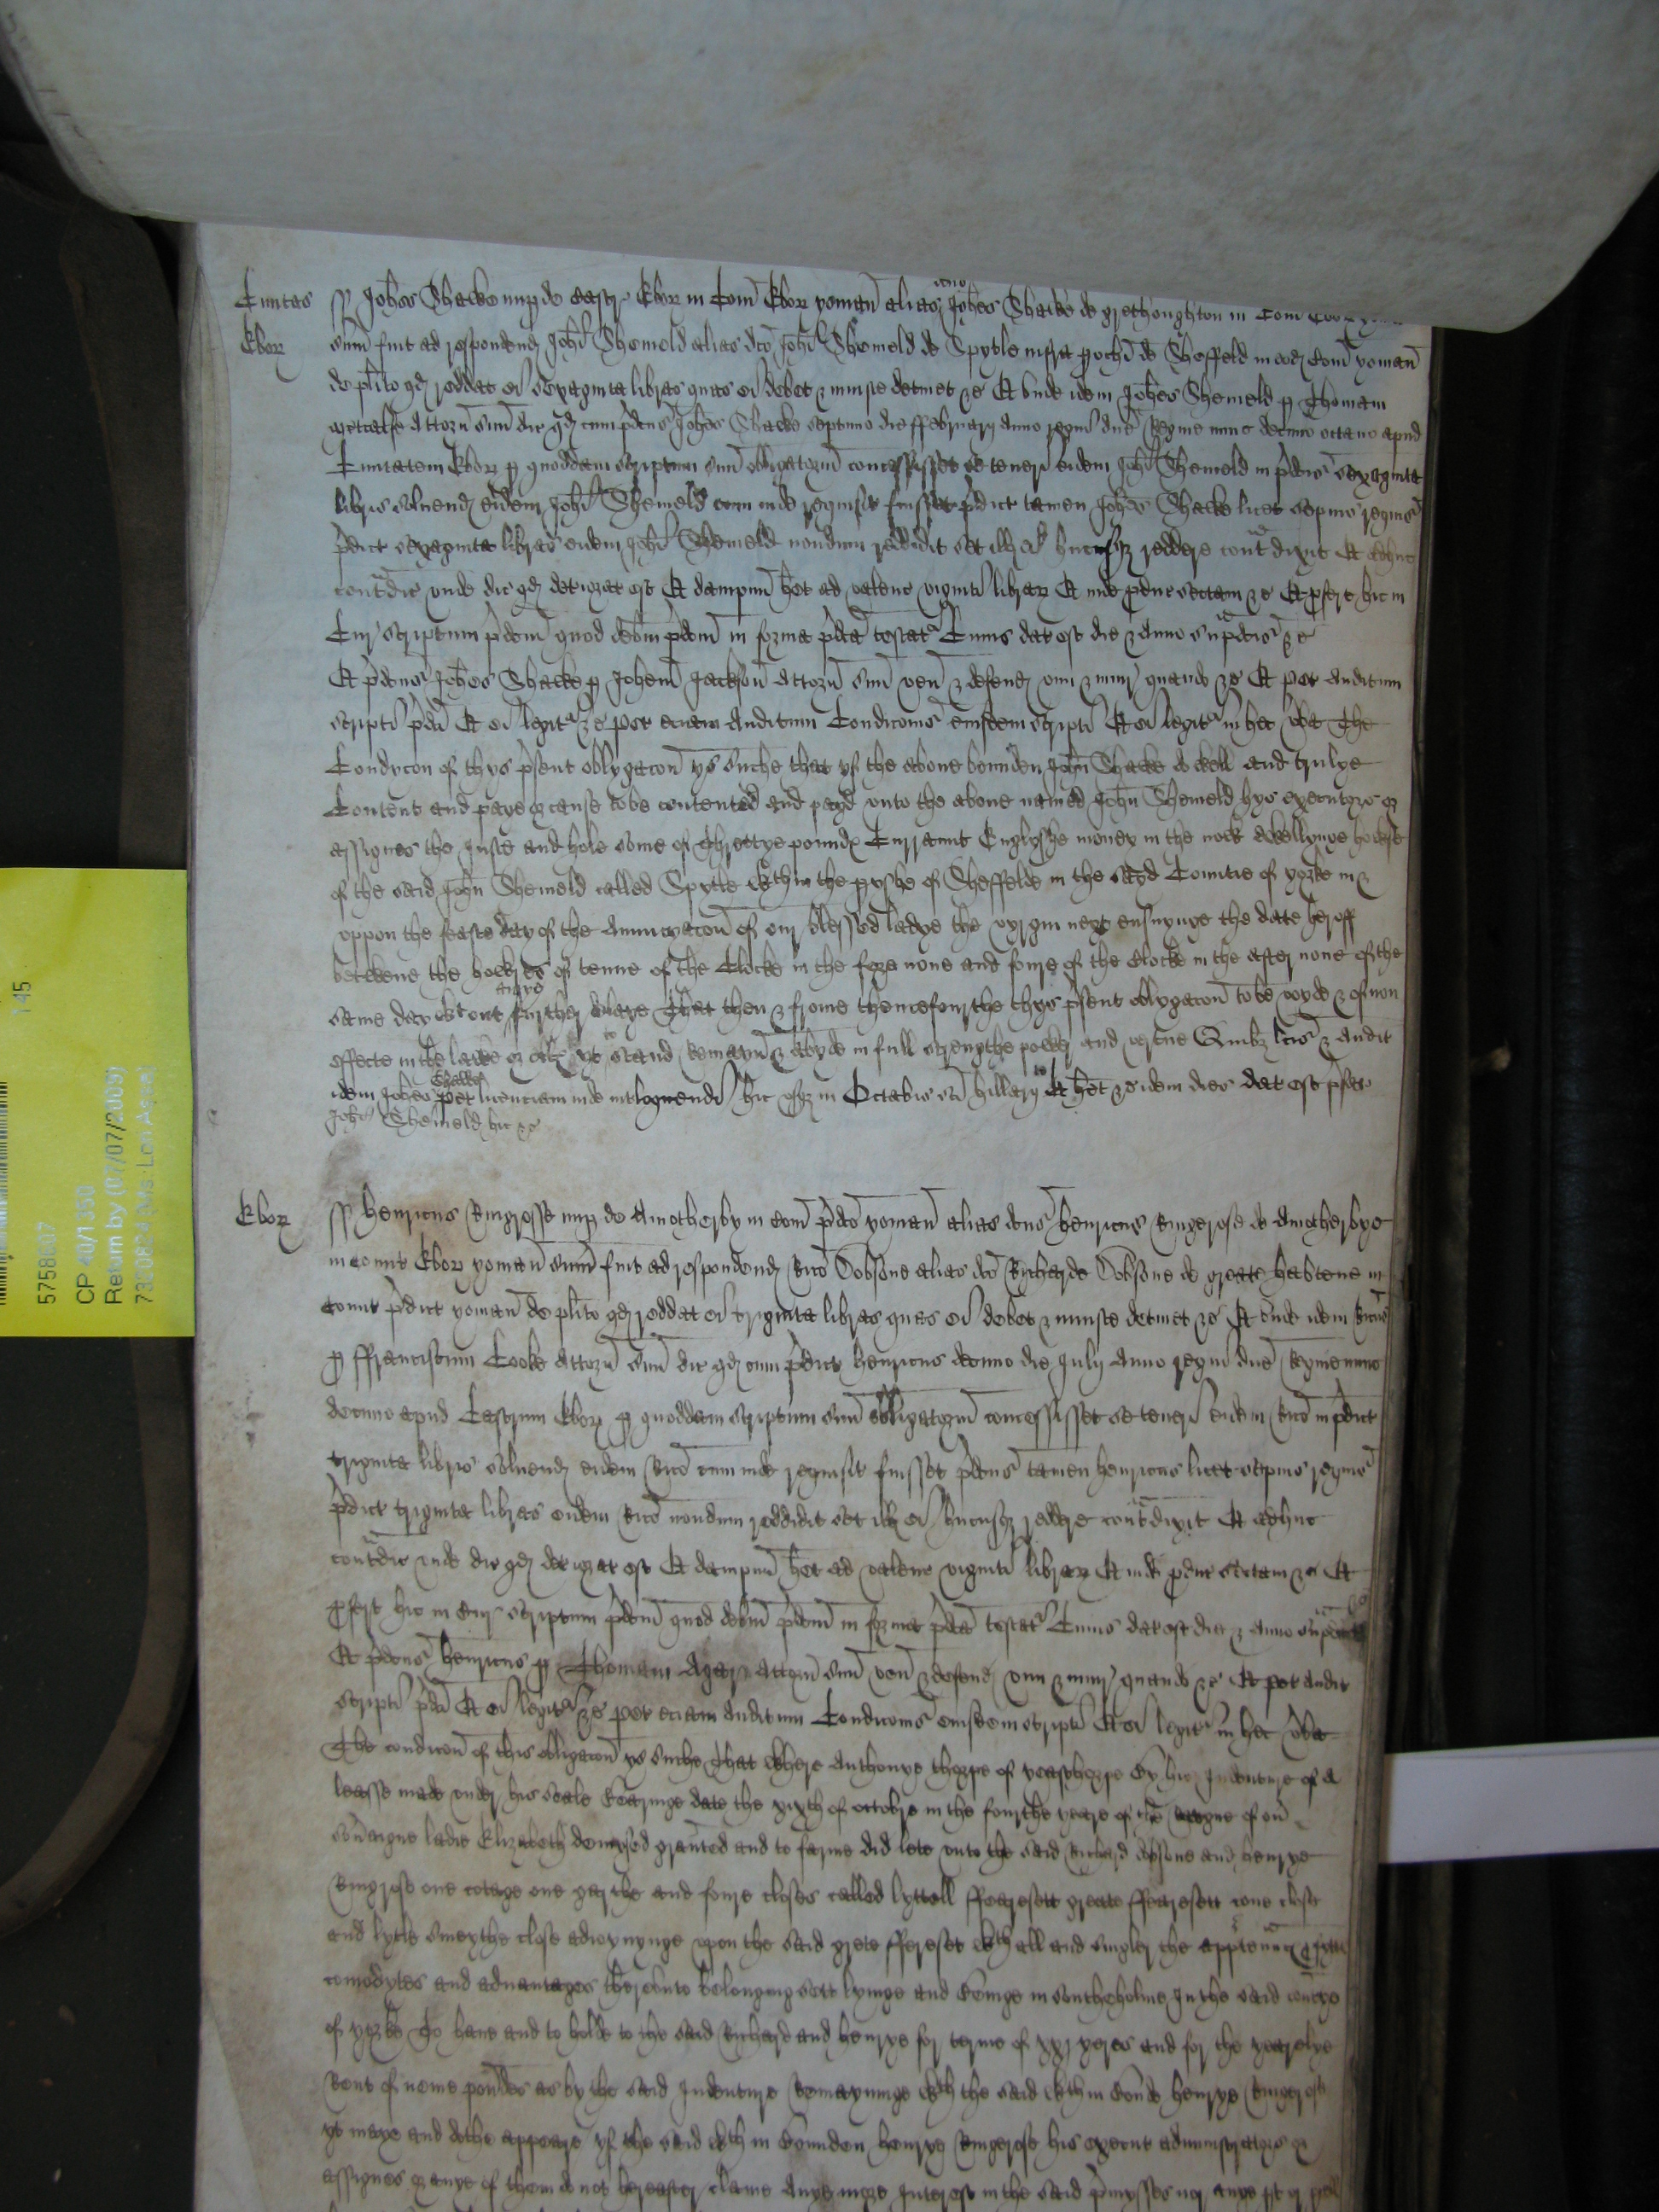 Civitas Ebor ss Joh̃es Shacke nup de Castr Ebor in Com̃ Ebor yoman alias dc̃us Joh̃es Shacke de grethoughton in Com Ebor
sum̃ fuit ad respondend Joh̃i Shemeld alias dc̃o Joh̃i Shemeld de Spytle infra poch de Sheffeld in eod Com̃ yoman
de plito qd reddat ei sexaginta libras quas ei debet & iniuste detinet &c Et unde idem Joh̃es Shemeld p Thomam
Metcalfe Attorn suũ dic qd cum p̃dc̃us Joh̃es Shacke septimo die ffebruarij Anno regni dñe Regine nunc decimo octavo apud
Civitatem Ebor p quoddam scriptum suũ obligatoriũ concessisset se teneri eidem Joh̃i Shemeld in p̃dc̃is sexaginta
libris solvend eidem Joh̃i Shemeld cum inde requisit fuisset p̃dict tamen Joh̃es Shacke licet sepius requis
p̃dict sexaginta libras eidem Joh̃i Shemeld nondum reddidit set ill ei hucusq reddere cont̃dixit Et adhuc
cont̃dic unde dic qd deteriorat est Et dampnũ h̃et ad valenc viginti librar Et inde pduc sectam &c Et pfert hic in
Cur scriptum p̃dc̃m quod debm̃ p̃dc̃m in forma p̃dc̃a testat Cuius dat est die & Anno sup̃dc̃is &c
Et p̃dc̃us Joh̃es Shacke p Joh̃em Jackson Attorn suũ ven & defend vim & iniur quando &c Et pet auditum
scripti p̃dc̃i Et ei legit &c pet eciam Auditum Condicõnis eiusdem scripti Et ei legit in hec v̄ba The
Condycon of thys p̃sent oblygacoñ ys suche that yf the above bounden John Shacke do well and trulye
Content and paye or cause to be contented and payd unto the above named John Shemeld hys executors or
assignes the Juste and hole some of Threttye pound Currannt Englyshe money in the now dwellynge howse
of the said John Shemeld called Spytle wthin the pyshe of Sheffelde in the sayd Countie of yorke in &
uppon the feaste day of the Annucyacoñ of our blessed ladye the vyrgin next ensuynge the date heroff
betwene the howres of tenne of the Clocke in the fore none and foure of the Clocke in the after none of the
same day wtout anye further delaye That then & frome thencefourthe thys p̃sent oblygacoñ to be voyde & of non
effecte in the lawe or els yt to stand Remayn & abyde in full strengthe power and vertue Quibz lc̃is & audit
idem Joh̃es Shacke pet licenciam inde int̃loquendi hic usq in Octabis sc̃i hillarij Et h̃et &c idem dies dat est p̃fato
Joh̃i Shemeld hic &c
Ebor ss Henricus Ringrosse nup de Amotherby in com̃ p̃dc̃o yoman alias dc̃us Henricus Ringerose de Amotherbye
in comit Ebor yoman sum̃ fuit ad respondend Ric̃o Dobsone alias dc̃o Richarde Dobsone de greate habtone in
comit p̃dict yoman de plito qd reddat ei triginta libras quas ei debet & iniuste detinet &c Et unde idem Ric̃us
p ffranciscum Cooke Attorn suũ dic qd cum p̃dict Henricus decimo die Julij Anno regni dñe Regine nunc
decimo apud Castrum Ebor p quoddam scriptum suũ obligatoriũ concessisset se teneri eidem Ric̃o in p̃dict
triginta libris solvend eidem Ric̃o cum inde requisit fuisset p̃dc̃us tamen Henricus licet sepius requis
p̃dict triginta libras eidem Ric̃o nondum reddidit set ill ei hucusq reddere cont̃dixit Et adhuc
cont̃dic unde dic qd deteriorat est Et dampnũ h̃et ad valenc viginti librar Et inde pduc sectam &c Et
pfert hic in Cur scriptum p̃dc̃m quod debm̃ p̃dc̃m in forma p̃dc̃a testat Cuius dat est die & Anno sup̃dc̃is
Et p̃dc̃us Henricus p Thomam Agar Attorn suũ ven & defend vim & iniur quando &c Et pet audit
scripti p̃dc̃i Et ei legit &c pet eciam Auditum Condicõnis eiusdem scripti Et ei legit in hec v̄ba
The condicoñ of this obligacoñ ys suche That where Anthonye thorpe of by his Indenture of a
leasse made under his seale bearinge date the xixth of octobre in the fourthe yeare of the reigne of ou
sov̄aigne ladie Elizabeth demysed graunted and to farme did lete unto the said Richard dobsone and henrye
Ringrose one cotage one garthe and foure closes called lyttell ffearesett greate ffearesett cone close
and lytle smeythe close adioynynge upon the said grete ffereset wth all and singler the apptenũnc
comodytes and advantages therunto belonging sett lyinge and beinge in southeholme In the said contye
of yorke To have and to holde to the said Richard and henrye for terme of xxj yeres and for the yearelye
Rent of nome poundes as by the said Indenture Remayninge wth the said wthin bound henrye Ringerose
yt maye and dothe appeare yf the said wthin bounden henrye Ringerose his execut administrators or
assignes or anye of them do not hereafter clame Anye more Interest in the said p̃mysses nor anye pt

5758607
CP 40/1350
Return by (07/07/2009)